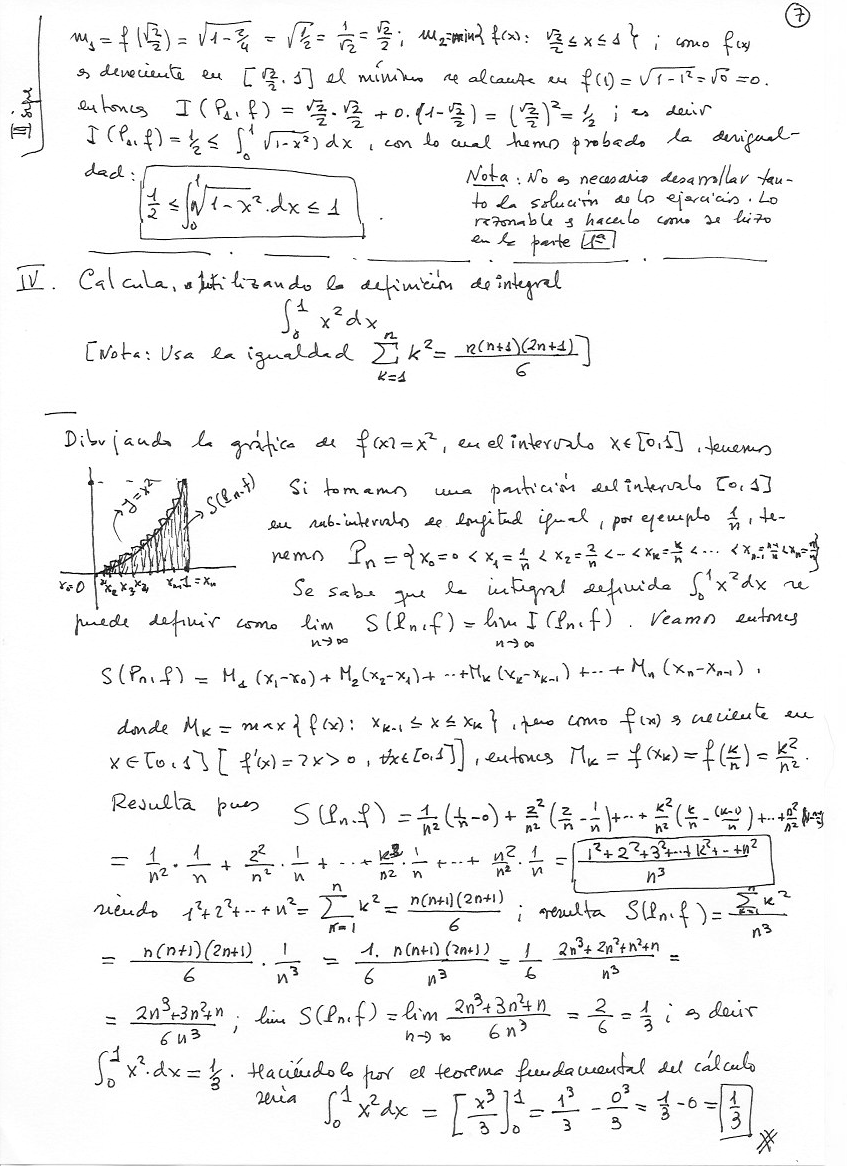 7
III sigue
m₁ = f(√2/2) = √(1-2/4) = √(1/2) = 1/√2 = √2/2; m₂=min{f(x): √2/2 ≤ x ≤ 1}; como f(x)
es decreciente en [√2/2, 1] el mínimo se alcanza en f(1) = √(1-1²) = √0 = 0.
entonces I(P₁, f) = √2/2 · √2/2 + 0·(1-√2/2) = (√2/2)² = 1/2; es decir
I(P₁, f) = 1/2 ≤ ∫₀¹ √(1-x²) dx, con lo cual hemos probado la desigual-
dad:
1/2 ≤ ∫₀¹ √(1-x²)·dx ≤ 1 .
Nota: No es necesario desarrollar tan-
to la solución de los ejercicios. Lo
razonable es hacerlo como se hizo
en la parte 1ª
IV. Calcula, utilizando la definición de integral
∫₀¹ x² dx
[Nota: Usa la igualdad Σ_{k=1}^{n} k² = n(n+1)(2n+1)/6]
Dibujando la gráfica de f(x)=x², en el intervalo x∈[0,1], tenemos
y=x²
S(Pn,f)
x₀=0 x₁ x₂ x₃ x₄ xₙ₋₁ 1=xₙ
Si tomamos una partición del intervalo [0,1]
en sub-intervalos de longitud igual, por ejemplo 1/n, te-
nemos Pₙ = {x₀=0 < x₁=1/n < x₂=2/n < ·· < xₖ=k/n < ··· < xₙ₋₁=n-1/n < xₙ=n/n}
Se sabe que la integral definida ∫₀¹ x² dx se
puede definir como lim_{n→∞} S(Pₙ,f) = lim_{n→∞} I(Pₙ,f). Veamos entonces
S(Pₙ,f) = M₁(x₁-x₀) + M₂(x₂-x₁) + ··· + Mₖ(xₖ-xₖ₋₁) + ··· + Mₙ(xₙ-xₙ₋₁),
donde Mₖ = max{f(x): xₖ₋₁ ≤ x ≤ xₖ}, pero como f(x) es creciente en
x∈[0,1] [f'(x) = 2x > 0, ∀x∈[0,1]], entonces Mₖ = f(xₖ) = f(k/n) = k²/n².
Resulta pues S(Pₙ,f) = 1/n²(1/n-0) + 2²/n²(2/n-1/n) + ··· + k²/n²(k/n-(k-1)/n) + ··· + n²/n²
= 1/n² · 1/n + 2²/n² · 1/n + ··· + k²/n² · 1/n + ··· + n²/n² · 1/n = (1²+2²+3²+···+k²+···+n²)/n³
siendo 1²+2²+···+n² = Σ_{k=1}^{n} k² = n(n+1)(2n+1)/6; resulta S(Pₙ,f) = Σ_{k=1}^{n} k²/n³
= n(n+1)(2n+1)/6 · 1/n³ = 1/6 · n(n+1)(2n+1)/n³ = 1/6 (2n³+2n²+n²+n)/n³ =
= (2n³+3n²+n)/6n³; lim S(Pₙ,f) = lim_{n→∞} (2n³+3n²+n)/6n³ = 2/6 = 1/3; es decir
∫₀¹ x²·dx = 1/3. Haciéndolo por el teorema fundamental del cálculo
sería ∫₀¹ x² dx = [x³/3]₀¹ = 1³/3 - 0³/3 = 1/3 - 0 = 1/3